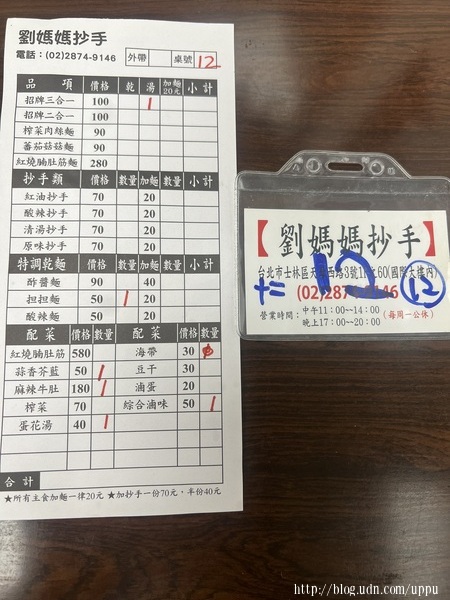 劉媽媽抄手
電話：(02)2874-9146 外帶 桌號 12
品 項 價格 乾 湯 加麵20元 小計
招牌三合一 100 1
招牌二合一 100
榨菜肉絲麵 90
蕃茄菇菇麵 90
紅燒腩肚筋麵 280
抄手類 價格 數量 加麵 數量 小計
紅油抄手 70 20
酸辣抄手 70 20
清湯抄手 70 20
原味抄手 70 20
特調乾麵 價格 數量 加麵 數量 小計
酢醬麵 90 40
担担麵 50 1 20
酸辣麵 50 20
配菜 價格 數量 配菜 價格 數量
紅燒腩肚筋 580 海帶 30
蒜香芥藍 50 1 豆干 30
麻辣牛肚 180 1 滷蛋 20
榨菜 70 綜合滷味 50 1
蛋花湯 40 1
合計
★所有主食加麵一律20元 ★加抄手一份70元，半份40元
【劉媽媽抄手】
台北市士林區天母西路3號1F之60(國際大樓內)
(02)2874-9146
營業時間：中午11：00~14：00 (每周一公休)
晚上17：00~20：00
12
http://blog.udn.com/uppu